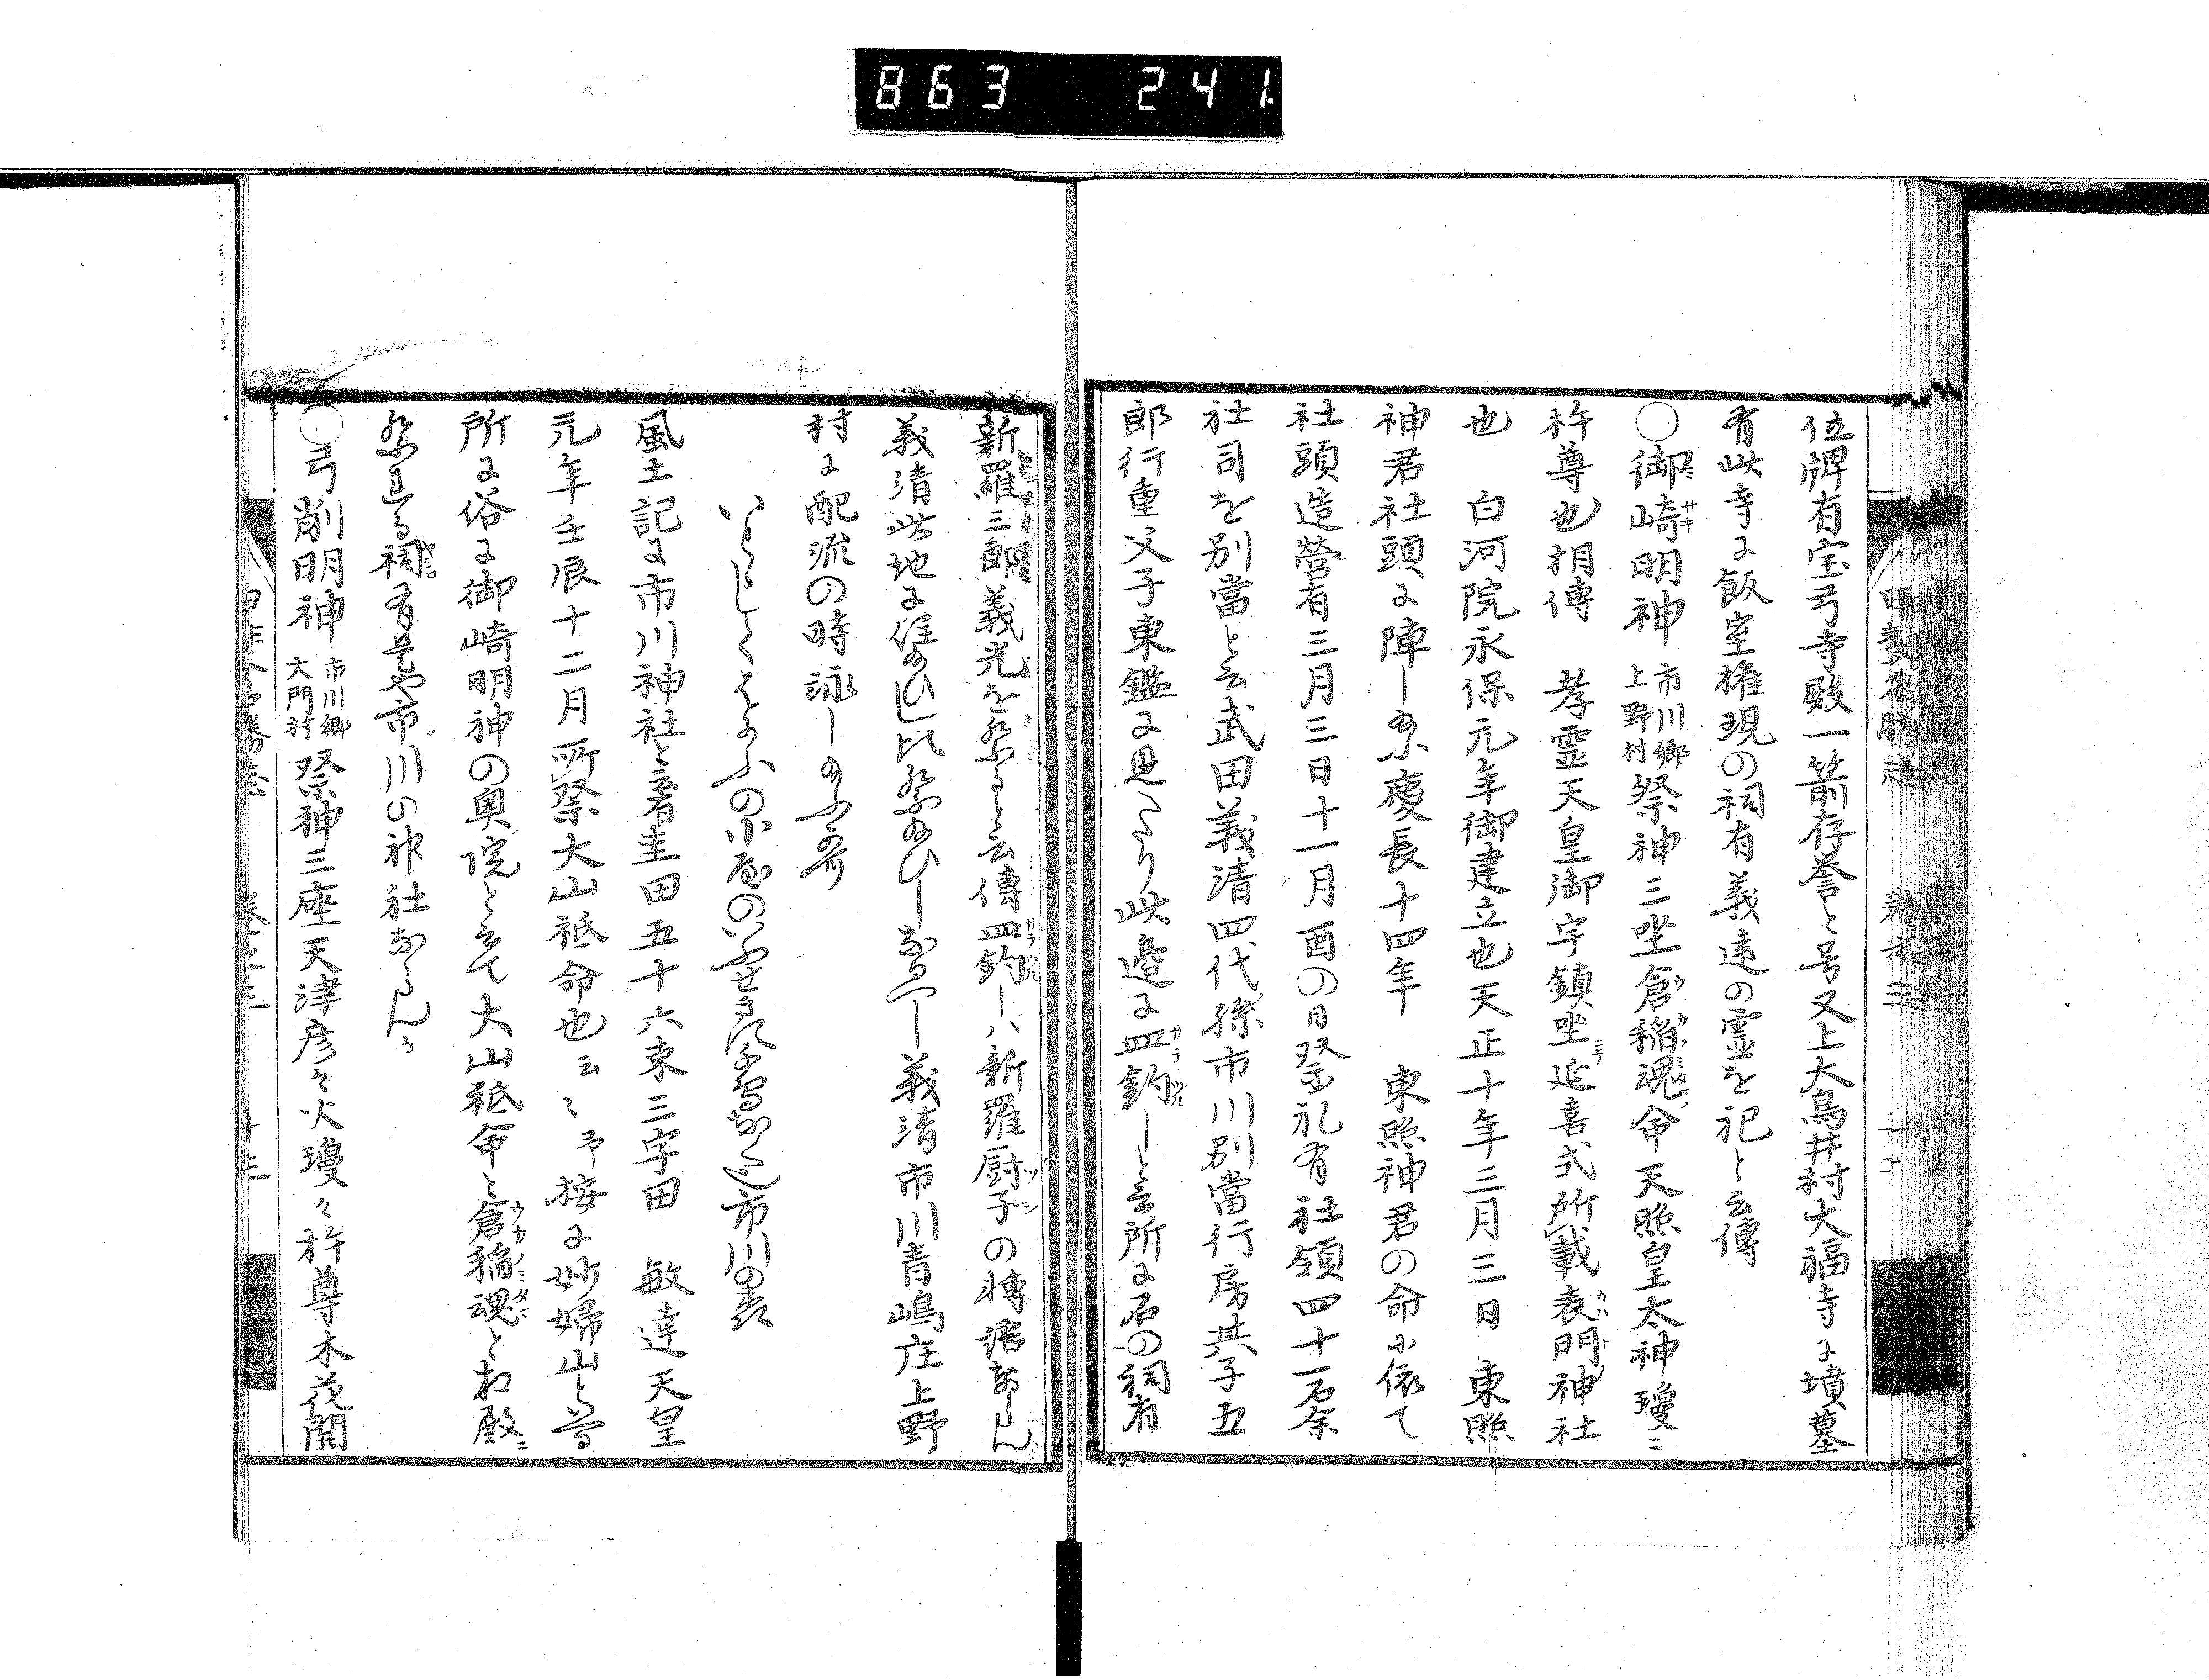 863 241
位牌有宝弓寺殿一箭存誉と号又上大鳥井村大福寺に墳墓
有此寺に飯室権現の祠有義遠の霊を祀と云傳
○御崎明神 市川郷上野村 祭神三坐倉稲魂命天照皇太神瓊ニ
杵尊也相傳 孝霊天皇御宇鎮坐延喜式所載表門神社
也 白河院永保元年御建立也天正十年三月三日 東照
神君社頭に陣し給ふ慶長十四年 東照神君の命に依て
社頭造營有三月三日十一月酉の日祭礼有社領四十一石余
社司を別當と云武田義清四代孫市川別當行房其子五
郎行重父子東鑑に見へたり此邉に皿釣しと云所に石の祠有
新羅三郎義光を祭ると云傳皿釣しハ新羅厨子の轉語ならん
義清此地に住給ひし比祭給ひしなるへし義清市川青嶋庄上野
村に配流の時詠し給ふ哥
風土記に市川神社と著圭田五十六束三字田 敏達天皇
元年壬辰十二月所祭大山祗命也云々予按に妙婦山と号
所に俗に御崎明神の奥院と云て大山祗命と倉稲魂と相殿ニ
祭れる祠有是や市川の神社ならんか
○弓削明神 市川郷大門村 祭神三座天津彦々火瓊々杵尊木花開